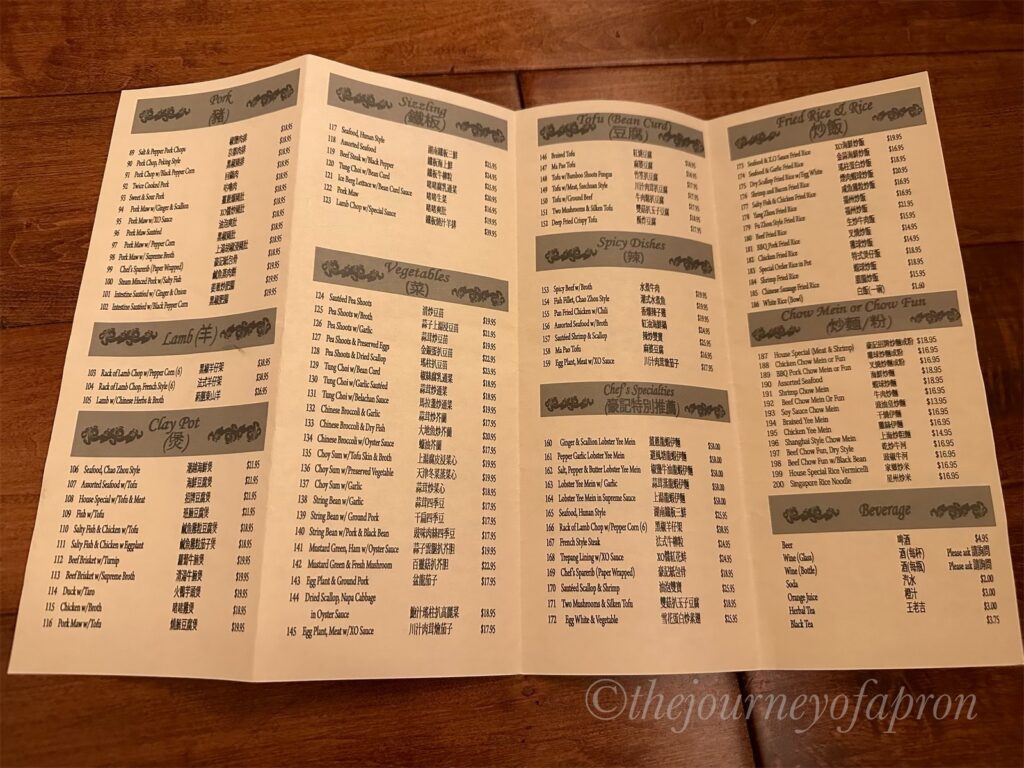 Pork
(豬)
89 Salt & Pepper Pork Chops 椒鹽肉排 $18.95
90 Pork Chop, Peking Style 京都肉排 $18.95
91 Pork Chop w/Black Pepper Corn $18.95
92 Twice Cooked Pork 回鍋肉 $18.95
93 Sweet & Sour Pork 咕嚕肉
94 Pork Maw w/Ginger & Scallion
95 Pork Maw w/XO Sauce
96 Pork Maw Sautéed
97 Pork Maw w/Pepper Corn
98 Pork Maw w/Supreme Broth
99 Chef's Sparerib (Paper Wrapped)
100 Steam Minced Pork w/Salty Fish
101 Intestine Sautéed w/Ginger & Onion
102 Intestine Sautéed w/Black Pepper Corn
Lamb (羊)
103 Rack of Lamb Chop w/Pepper Corn (6) 黑椒羊仔架 $38.95
104 Rack of Lamb Chop, French Style (6) 法式羊仔架 $38.95
105 Lamb w/Chinese Herbs & Broth $26.95
Clay Pot
(煲)
106 Seafood, Chao Zhou Style 潮州海鮮煲 $21.95
107 Assorted Seafood w/Tofu 海鮮豆腐煲 $21.95
108 House Special w/Tofu & Meat 招牌豆腐煲 $21.95
109 Fish w/Tofu 斑腩豆腐煲 $21.95
110 Salty Fish & Chicken w/Tofu 鹹魚雞粒豆腐煲 $18.95
111 Salty Fish & Chicken w Eggplant 鹹魚雞粒茄子煲 $18.95
112 Beef Brisket w/Turnip 蘿蔔牛腩煲 $19.95
113 Beef Brisket w/Supreme Broth 清湯牛腩煲 $19.95
114 Duck w/Taro 火鴨芋頭煲 $19.95
115 Chicken w/Broth 啫啫雞煲 $18.95
116 Pork Maw w/Tofu $19.95
Sizzling
(鐵板)
117 Seafood, Hunan Style 湖南鐵板三鮮
118 Assorted Seafood 鐵板海上鮮 $25.95
119 Beef Steak w/Black Pepper 鐵板牛柳粒
120 Tung Choi w/Bean Curd 啫啫腐乳通菜
121 Ice Berg Lettuce w/Bean Curd Sauce 啫啫生菜
122 Pork Maw 啫啫爽肚
123 Lamb Chop w/Special Sauce 鐵板燒汁羊排 $39.95
Vegetables
(菜)
124 Sautéed Pea Shoots 清炒豆苗 $19.95
125 Pea Shoots w/Broth 蒜子上湯浸豆苗 $21.95
126 Pea Shoots w/Garlic 蒜茸炒豆苗 $19.95
127 Pea Shoots w/Preserved Eggs 金銀蛋扒豆苗 $21.95
128 Pea Shoots & Dried Scallop 瑤柱扒豆苗
129 Tung Choi w/Bean Curd 椒絲腐乳通菜
130 Tung Choi w/Garlic Sautéed 蒜茸炒通菜
131 Tung Choi w/Belachan Sauce 馬拉盞炒通菜
132 Chinese Broccoli & Garlic 蒜茸炒芥蘭
133 Chinese Broccoli & Dry Fish 大地魚炒芥蘭
134 Chinese Broccoli w/Oyster Sauce 蠔油芥蘭
135 Choy Sum w/Tofu Skin & Broth 上湯腐皮浸菜心
136 Choy Sum w/Preserved Vegetable 天津冬菜蒸菜心 $19.95
137 Choy Sum w/Garlic 蒜茸炒菜心 $17.95
138 String Bean w/Garlic 蒜茸四季豆 $17.95
139 String Bean w/ Ground Pork 干扁四季豆 $17.95
140 String Bean w/Pork & Black Bean 豉味肉絲四季豆 $17.95
141 Mustard Green, Ham w/Oyster Sauce 蒜子雲腿扒芥胆 $19.95
142 Mustard Green & Fresh Mushroom 百靈菇扒芥胆 $22.95
143 Egg Plant & Ground Pork 盆龍茄子 $17.95
144 Dried Scallop, Napa Cabbage
in Oyster Sauce 鮑汁瑤柱扒高麗菜 $18.95
145 Egg Plant, Meat w/XO Sauce 川汁肉茸燴茄子 $17.95
Tofu (Bean Curd)
(豆腐)
146 Braised Tofu 紅燒豆腐 $16.95
147 Ma Pao Tofu 麻婆豆腐
148 Tofu w/Bamboo Shoots Fungus 竹笙扒豆腐
149 Tofu w/Meat, Szechuan Style 川汁肉茸扒豆腐
150 Tofu w/Ground Beef 牛肉鬆扒豆腐
151 Two Mushrooms & Silken Tofu 雙菇扒玉子豆腐
152 Deep Fried Crispy Tofu 椒鹽豆腐 $17.95
Spicy Dishes
(辣)
153 Spicy Beef w/Broth 水煮牛肉
154 Fish Fillet, Chao Zhou Style 潮式水煮魚
155 Pan Fried Chicken w/Chili 香爆辣子雞
156 Assorted Seafood w/Broth 紅油海鮮鍋
157 Sautéed Shrimp & Scallop 辣炒雙寶
158 Ma Pao Tofu 麻婆豆腐
159 Egg Plant, Meat w/XO Sauce 川汁肉茸燴茄子 $17.95
Chef's Specialties
(豪記特別推薦)
160 Ginger & Scallion Lobster Yee Mein 薑蔥龍蝦伊麵 $50.00
161 Pepper Garlic Lobster Yee Mein 避風塘龍蝦伊麵 $50.00
162 Salt, Pepper & Butter Lobster Yee Mein 椒鹽牛油龍蝦伊麵 $50.00
163 Lobster Yee Mein w/ Garlic 蒜茸蒸龍蝦伊麵 $50.00
164 Lobster Yee Mein in Supreme Sauce 上湯龍蝦伊麵 $50.00
165 Seafood, Human Style 湖南鐵板三鮮 $25.95
166 Rack of Lamb Chop w/Pepper Corn (6) 黑椒羊仔架 $38.95
167 French Style Steak 法式牛柳粒 $24.95
168 Trepang Lining w/XO Sauce XO醬桂花蚌 $38.95
169 Chef's Sparerib (Paper Wrapped) 豪記紙包骨 $18.95
170 Sautéed Scallop & Shrimp 油泡雙寶 $25.95
171 Two Mushrooms & Silken Tofu 雙菇扒玉子豆腐 $18.95
172 Egg White & Vegetable 雪花蛋白炒素翅 $25.95
Fried Rice & Rice
(炒飯)
173 Seafood & X.O Sauce Fried Rice XO海鮮炒飯 $19.95
174 Seafood & Garlic Fried Rice 金蒜海鮮炒飯 $19.95
175 Dry Scallop Fried Rice w/Egg White 瑤柱蛋白炒飯 $20.95
176 Shrimp and Bacon Fried Rice 煙肉蝦炒飯 $16.95
177 Salty Fish & Chicken Fried Rice 鹹魚雞粒炒飯 $16.95
178 Yang Zhou Fried Rice $16.95
179 Fu Zhou Style Fried Rice 福州炒飯 $21.95
180 Beef Fried Rice 生炒牛肉飯 $15.95
181 BBQ Pork Fried Rice 叉燒炒飯 $14.95
182 Chicken Fried Rice 雞球炒飯 $14.95
183 Special Order Rice in Pot 特式煲仔飯
184 Shrimp Fried Rice 蝦球炒飯
185 Chinese Sausage Fried Rice 臘腸炒飯 $15.95
186 White Rice (Bowl) 白飯(一碗) $1.60
Chow Mein or Chow Fun
(炒麵/粉)
187 House Special (Meat & Shrimp) 豪記招牌炒麵或粉 $18.95
188 Chicken Chow Mein or Fun 雞球炒麵或粉 $16.95
189 BBQ Pork Chow Mein or Fun 叉燒炒麵或粉 $16.95
190 Assorted Seafood 海鮮炒麵 $18.95
191 Shrimp Chow Mein 蝦球炒麵 $18.95
192 Beef Chow Mein Or Fun 牛肉炒麵 $16.95
193 Soy Sauce Chow Mein 豉油皇炒麵
194 Braised Yee Mein 干燒伊麵 $16.95
195 Chicken Yee Mein 雞絲伊麵 $16.95
196 Shanghai Style Chow Mein 上海炒粗麵 $14.95
197 Beef Chow Fun, Dry Style 乾炒牛河 $16.95
198 Beef Chow Fun w/Black Bean 豉椒牛河 $16.95
199 House Special Rice Vermicelli 家鄉炒米 $16.95
200 Singapore Rice Noodle 星州炒米 $16.95
Beverage
Beer 啤酒 $4.95
Wine (Glass) 酒(每杯) Please ask 請詢問
Wine (Bottle) 酒(每瓶) Please ask 請詢問
Soda 汽水 $3.00
Orange Juice 橙汁 $3.00
Herbal Tea 王老吉 $3.00
Black Tea $3.75
©thejourneyofapron